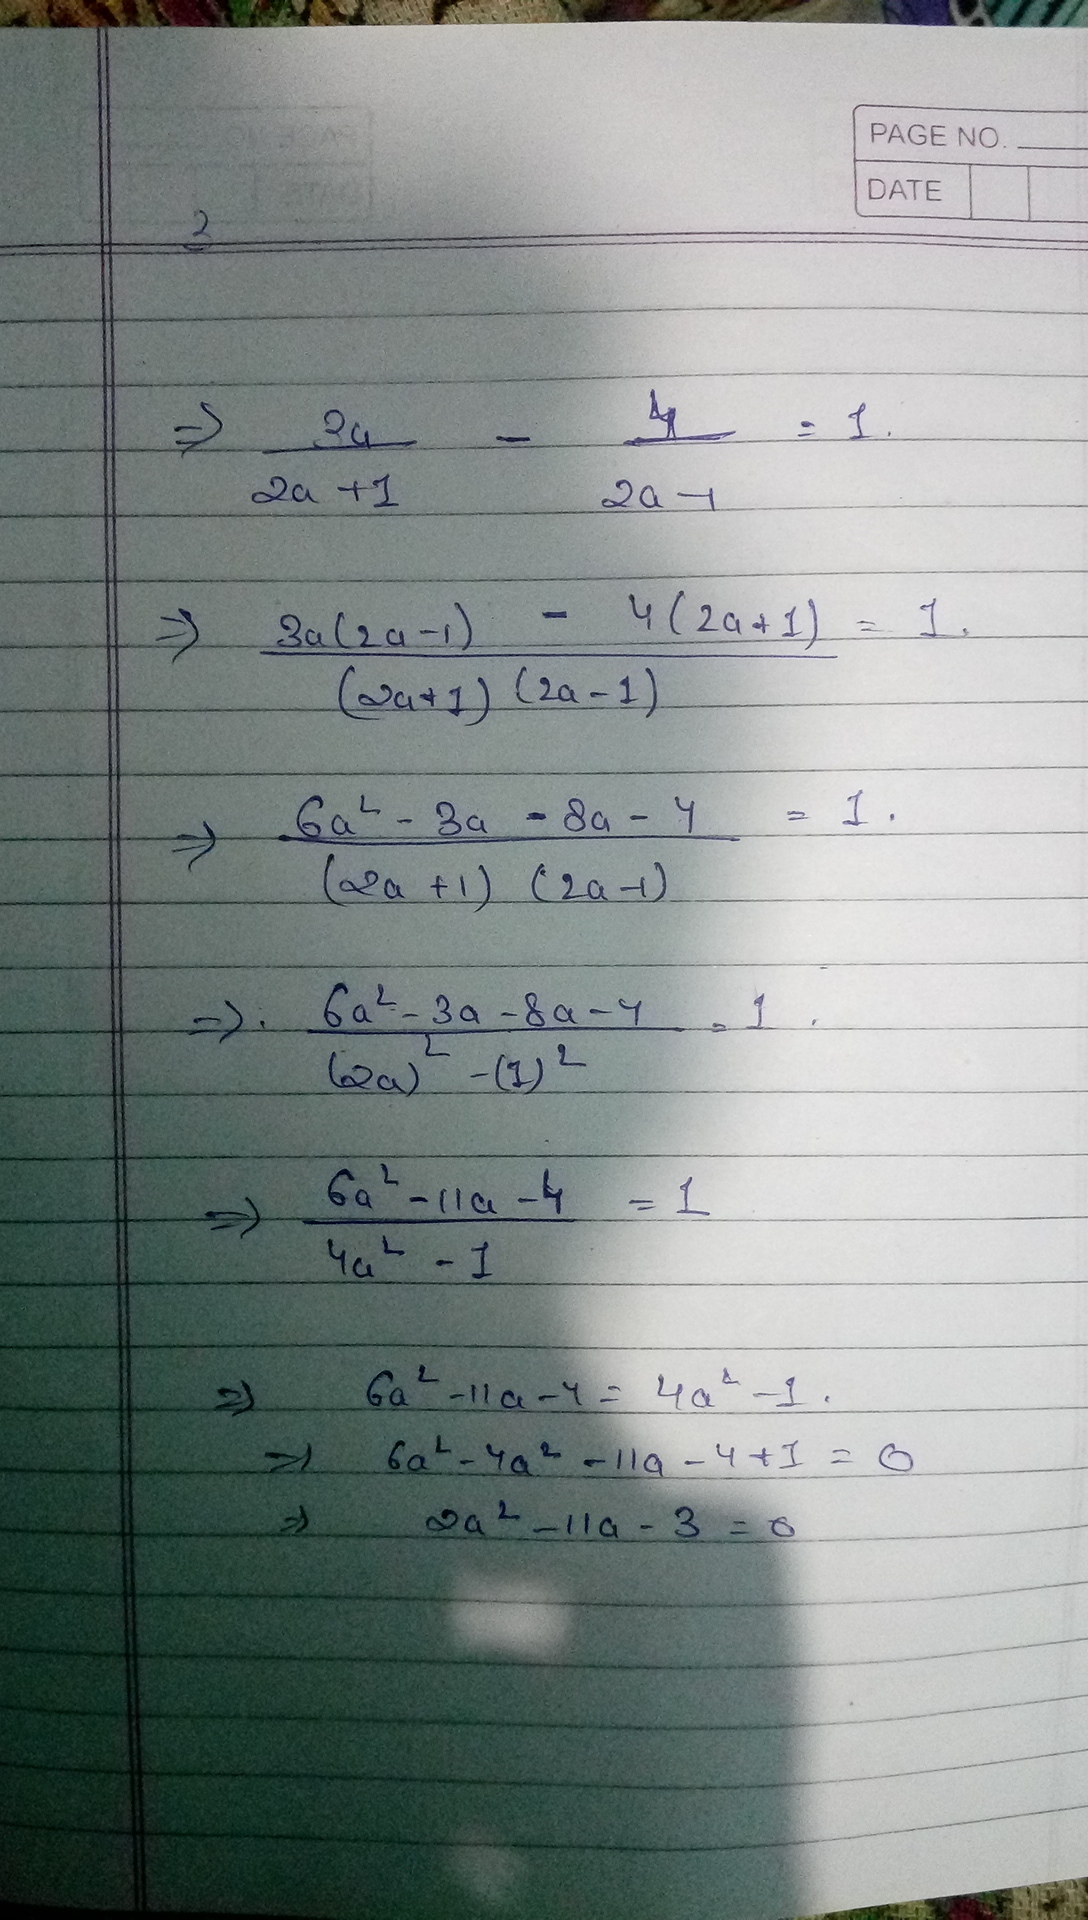 PAGE NO.
DATE
2
⇒ 3a/(2a+1) - 4/(2a-1) = 1.
⇒ (3a(2a-1) - 4(2a+1))/((2a+1)(2a-1)) = 1.
⇒ (6a² - 3a - 8a - 4)/((2a+1)(2a-1)) = 1.
⇒. (6a² - 3a - 8a - 4)/((2a)² - (1)²) = 1.
⇒ (6a² - 11a - 4)/(4a² - 1) = 1
⇒ 6a² - 11a - 4 = 4a² - 1.
⇒ 6a² - 4a² - 11a - 4 + 1 = 0
⇒ 2a² - 11a - 3 = 0